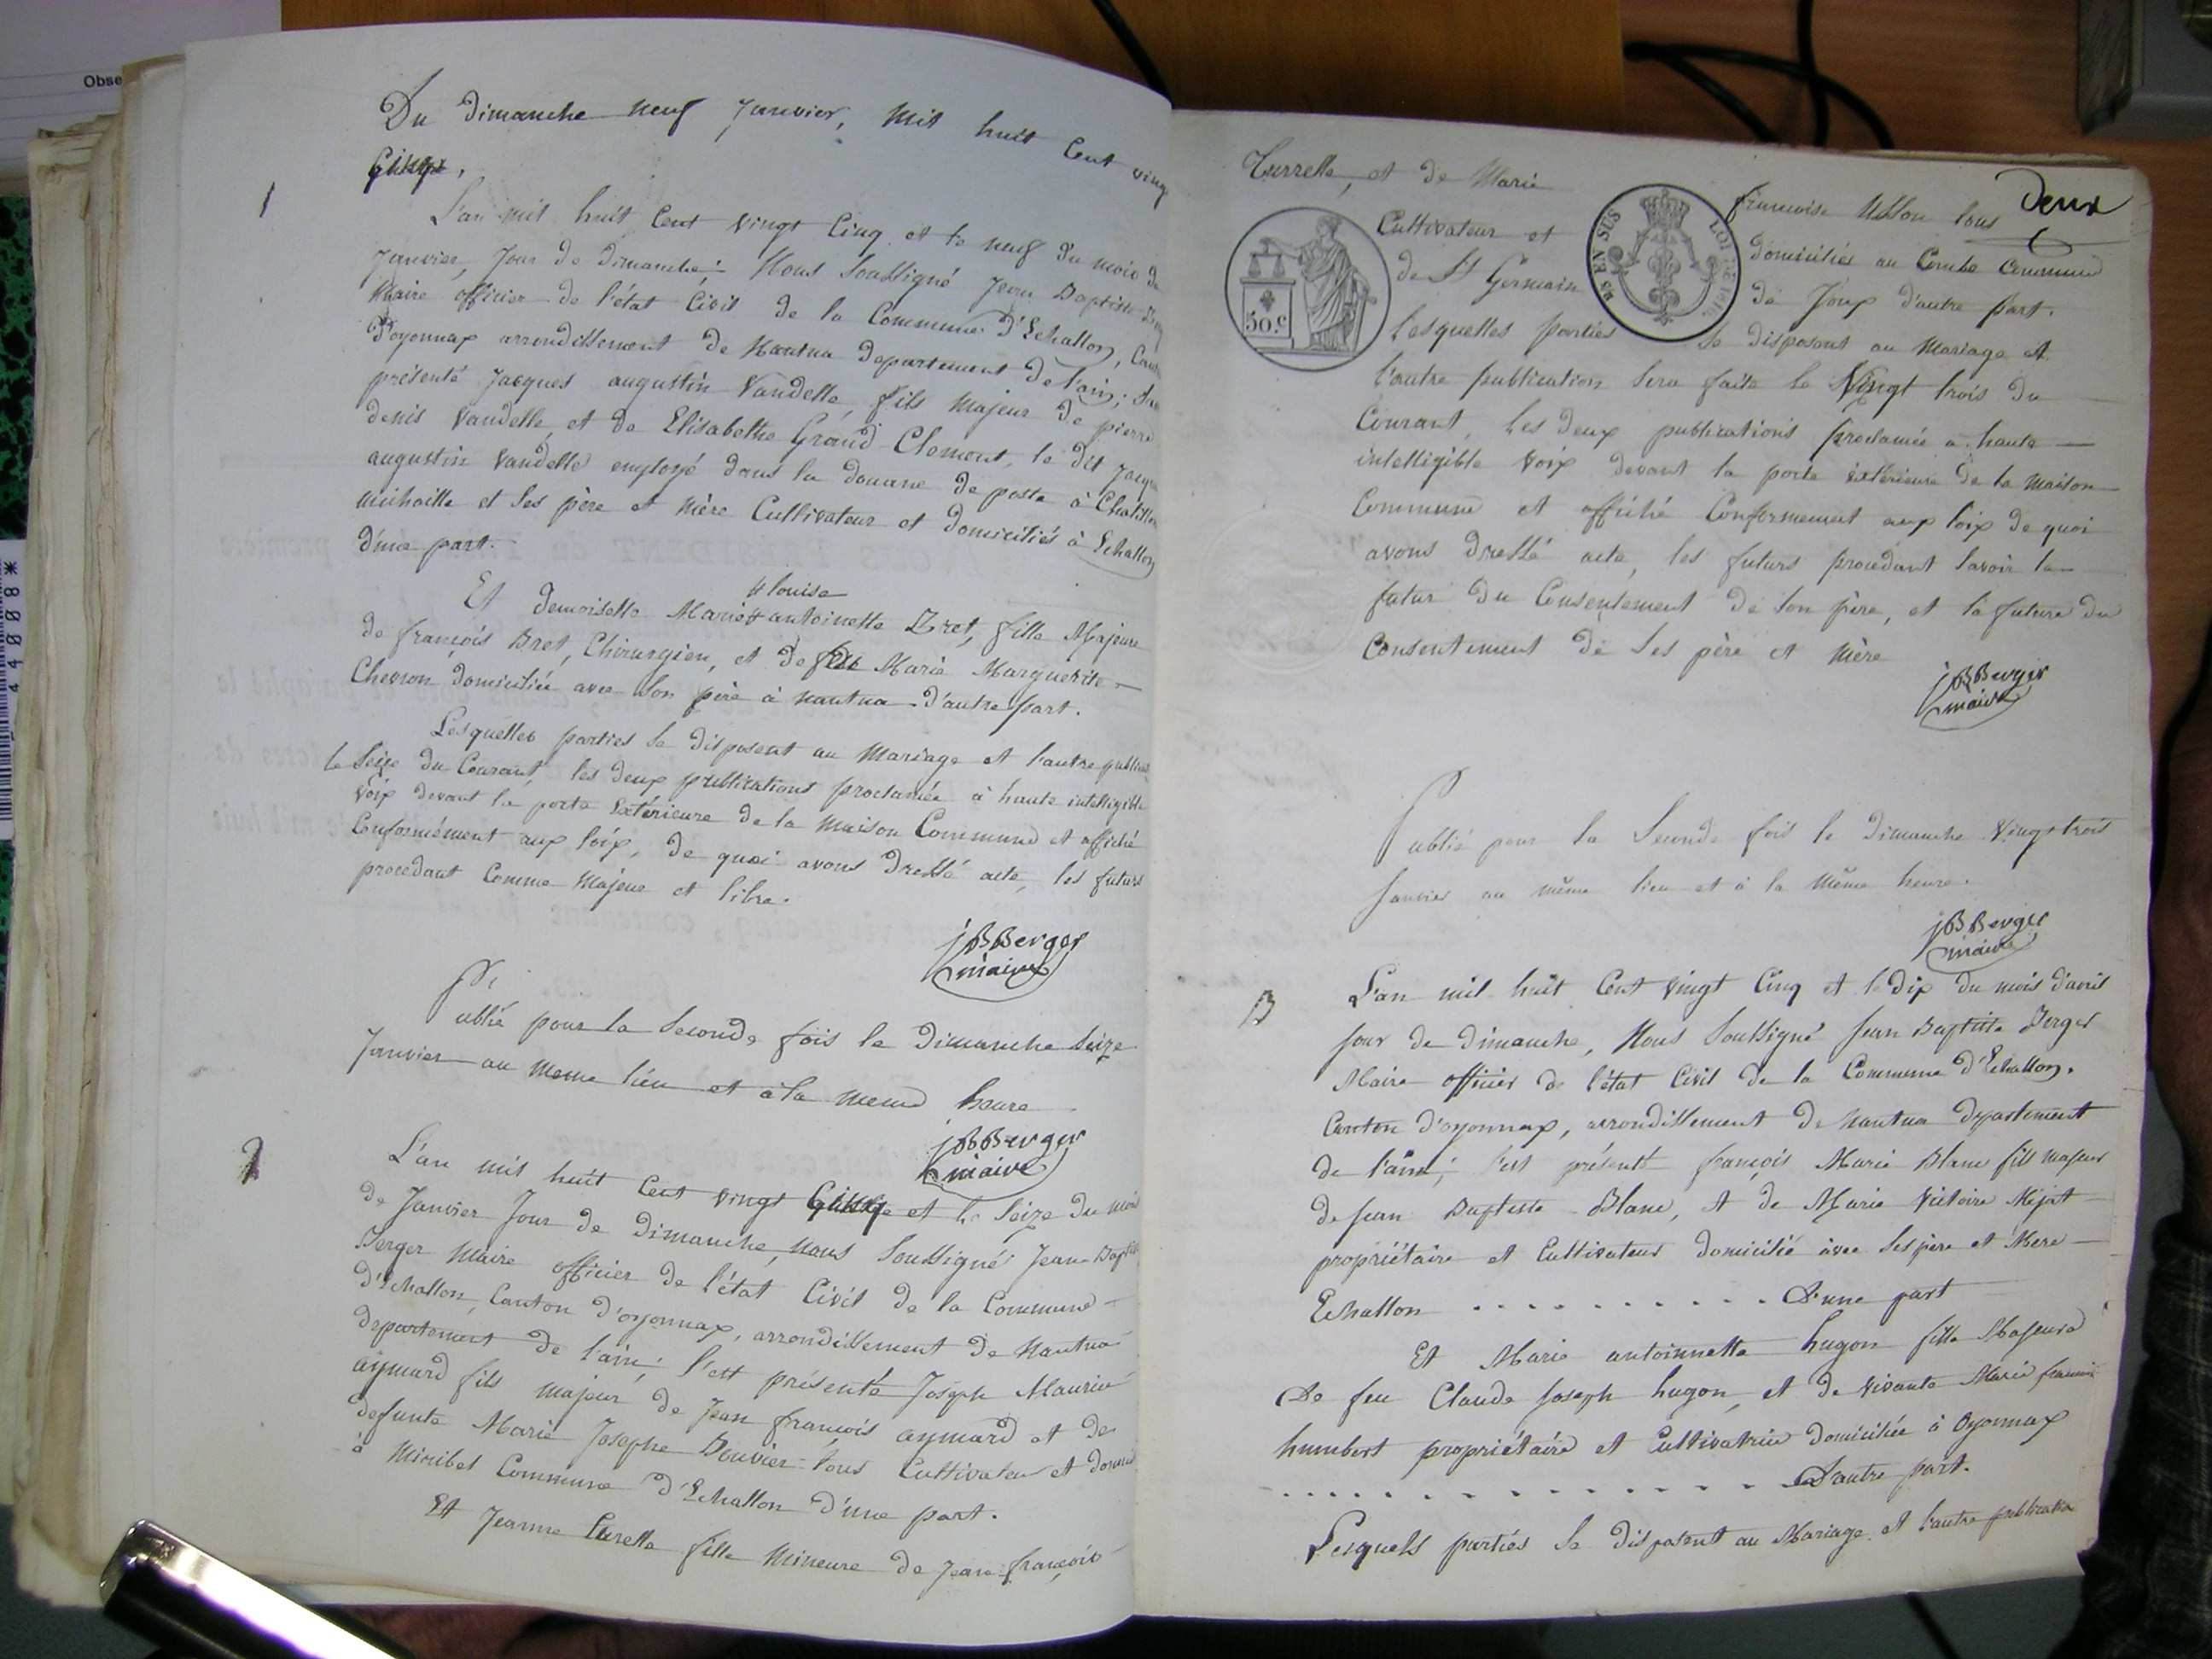 Obse
44008*
Du Dimanche neuf Janvier, mil huit Cent vingt
Cinq,
1
L'an mil huit Cent vingt Cinq et le neuf du mois de
Janvier, Jour de Dimanche; Nous Soussigné Jean Baptiste
Maire officier de l'état Civil de la Commune d'Echallon, Canton
d'oyonnax arrondissement de Nantua departement de l'ain; s'est
présenté Jacques augustin Vandelle, fils Majeur de pierre
denis Vandelle, et de Elisabethe Grand-Clement, le dit Jacques
augustin Vandelle employé dans la douane de poste à Chatillon
michaille et Ses père et mère Cultivateur et domiciliés à Echallon
d'une part.
# louise
Et demoiselle Marie # antoinette Bret, fille Majeure
de françois Bret, Chirurgien, et de feue Marie Marguerite
Chevron domiciliée avec Son père à nantua d'autre part.
Lesquelles parties Se disposent au Mariage et l'autre public
le Seize du Courant, les deux publications proclamée à haute intelligible
Voix devant la porte Extérieure de la Maison Commune et affiché
Conformément aux loix, de quoi avons Dressé acte, les futurs
procedant Comme Majeur et libre.
jBBerger
maire
Publié pour la Seconde fois le Dimanche Seize
Janvier au meme lieu et à la meme heure
jBBerger
maire
2
L'an mil huit Cent vingt Cinq et le Seize du mois
de Janvier Jour de Dimanche, nous Soussigné Jean Baptiste
Berger Maire officier de l'état Civil de la Commune
d'Echallon, Canton d'oyonnax, arrondissement de Nantua
departement de l'ain; s'est présenté Joseph Maurice
aymard fils majeur de Jean françois aymard et de
defunte Marie Josephe Bouvier tous Cultivateur et domici
à Miribel Commune d'Echallon d'une part.
Et Jeanne Turrelle fille Mineure de Jean françois
Deux
Turrelle, et de Marie françoise Usson tous
Cultivateur et domiciliés au Combe Commune
de St Germain de Joux d'autre part.
lesquelles parties Se disposent au Mariage et
50.c
EN SUS
LOI DE 1816
l'autre publication Sera faite le Vingt trois du
Courant, les deux publications proclamée a haute
intelligible Voix devant la porte Extérieure de la Maison
Commune et affiché Conformement aux loix de quoi
avons dressé acte, les futurs procedant Savoir le
futur du Consentement de Son père, et la future du
Consentement de Ses père et Mère
jBBerger
maire
Publié pour la Seconde fois le Dimanche Vingt trois
Janvier au même lieu et à la Même heure.
jBBerger
maire
3
L'an mil huit Cent Vingt Cinq et le dix du mois d'avril
Jour de Dimanche, Nous Soussigné Jean Baptiste Berger
Maire officier de l'état Civil de la Commune d'Echallon.
Canton d'oyonnax, arrondissement de Nantua departement
de l'ain; s'est présenté françois Marie Blanc fils majeur
de Jean Baptiste Blanc, et de Marie Victoire Mejat
propriétaire et Cultivateur domicilié avec Ses père et Mere
Echallon . . . . . . . . . . D'une part
Et Marie antoinnette hugon fille Majeure
De feu Claude Joseph hugon, et de vivante Marie
humbert propriétaire et Cultivatrice domiciliée à Oyonnax
. . . . . . . . . . . . . . . D'autre part.
Lesquels parties Se disposent au Mariage et l'autre publication